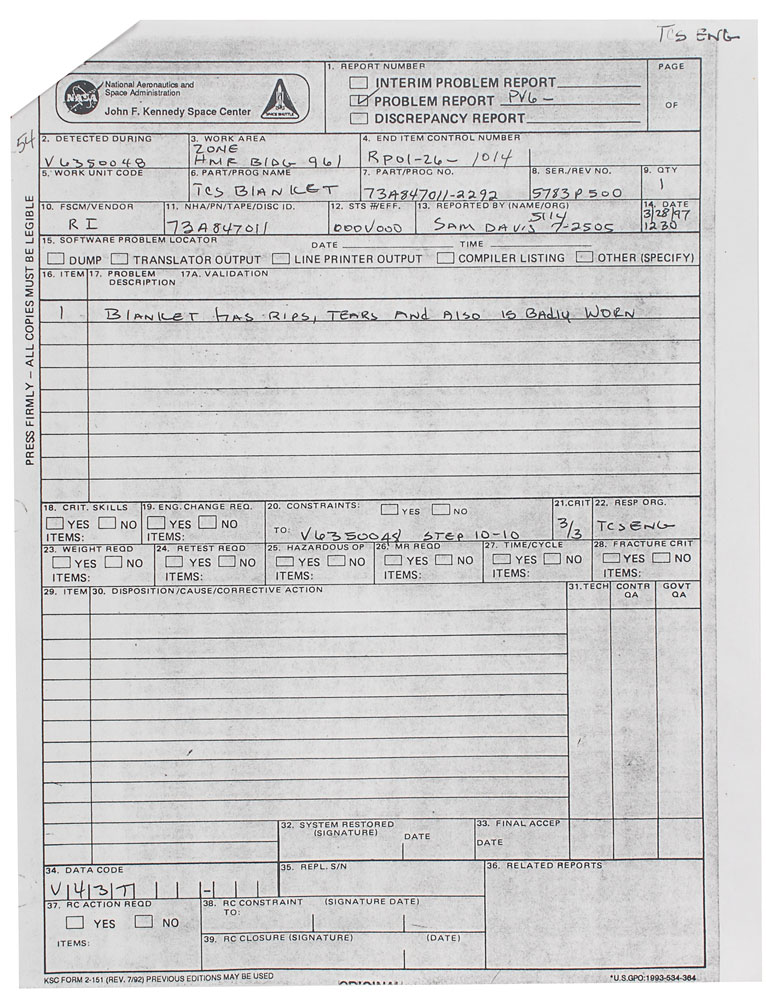 TCS ENG
54
NASA
National Aeronautics and
Space Administration
John F. Kennedy Space Center
SPACE SHUTTLE
1. REPORT NUMBER
INTERIM PROBLEM REPORT
PROBLEM REPORT PV6 -
DISCREPANCY REPORT
PAGE
OF
2. DETECTED DURING
V6350048
3. WORK AREA
ZONE
HMF BLDG 961
4. END ITEM CONTROL NUMBER
RP01-26- 1014
5. WORK UNIT CODE
6. PART/PROG NAME
TCS BLANKET
7. PART/PROG NO.
73A847011-2292
8. SER./REV NO.
5783P500
9. QTY
1
10. FSCM/VENDOR
RI
11. NHA/PN/TAPE/DISC ID.
73A847011
12. STS #/EFF.
000V000
13. REPORTED BY (NAME/ORG)
SAM DAVIS 5114 7-2505
14. DATE
3/28/97
1230
15. SOFTWARE PROBLEM LOCATOR
DATE
TIME
DUMP
TRANSLATOR OUTPUT
LINE PRINTER OUTPUT
COMPILER LISTING
OTHER (SPECIFY)
16. ITEM
17. PROBLEM
DESCRIPTION
17A. VALIDATION
1 BLANKET HAS RIPS, TEARS AND ALSO IS BADLY WORN
PRESS FIRMLY — ALL COPIES MUST BE LEGIBLE
18. CRIT. SKILLS
YES NO
ITEMS:
19. ENG. CHANGE REQ.
YES NO
ITEMS:
20. CONSTRAINTS:
YES NO
TO: V6350048 STEP 10-10
21. CRIT
3/3
22. RESP ORG.
TCS ENG
23. WEIGHT REQD
YES NO
ITEMS:
24. RETEST REQD
YES NO
ITEMS:
25. HAZARDOUS OP
YES NO
ITEMS:
26. MR REQD
YES NO
ITEMS:
27. TIME/CYCLE
YES NO
ITEMS:
28. FRACTURE CRIT
YES NO
ITEMS:
29. ITEM
30. DISPOSITION/CAUSE/CORRECTIVE ACTION
31. TECH
CONTR
QA
GOVT
QA
32. SYSTEM RESTORED
(SIGNATURE)
DATE
33. FINAL ACCEP
DATE
34. DATA CODE
V 4 3 T -
35. REPL. S/N
36. RELATED REPORTS
37. RC ACTION REQD
YES NO
ITEMS:
38. RC CONSTRAINT (SIGNATURE DATE)
TO:
39. RC CLOSURE (SIGNATURE) (DATE)
KSC FORM 2-151 (REV. 7/92) PREVIOUS EDITIONS MAY BE USED
*U.S.GPO:1993-534-364